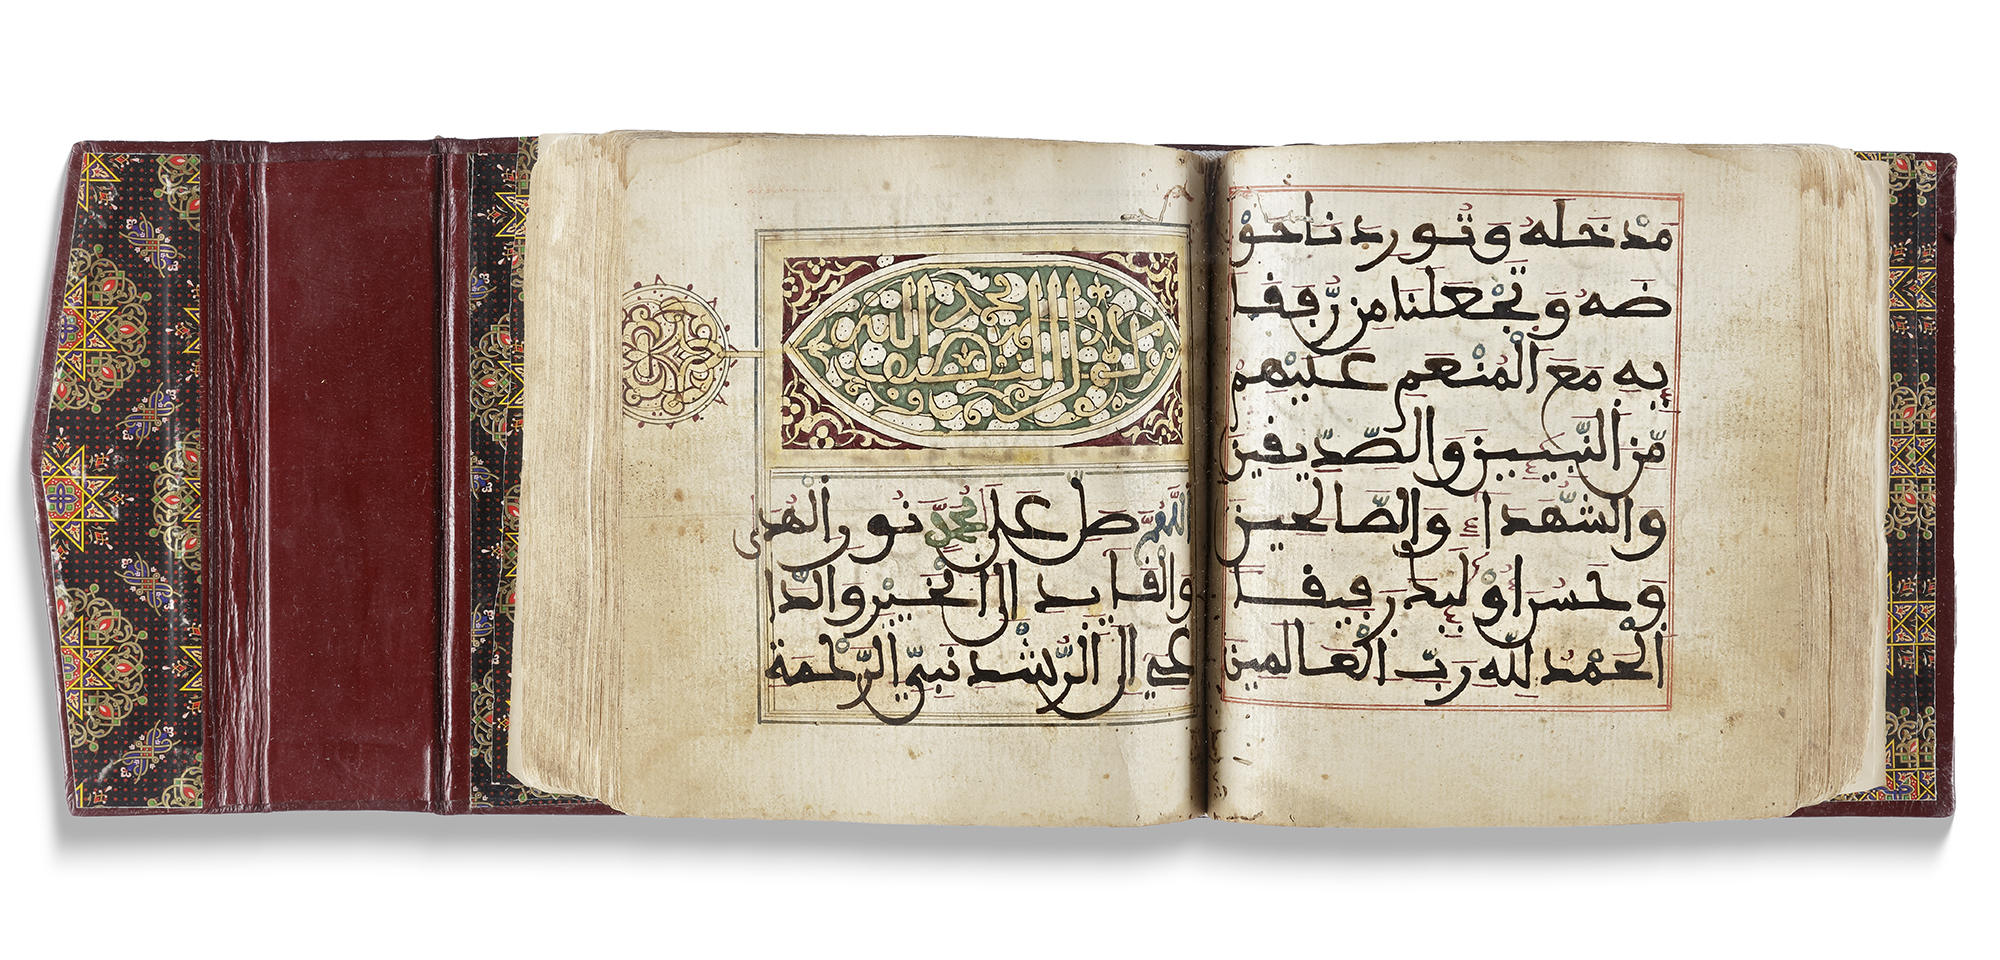 مَدْخَلَهُ وَتُورِدَنَا حَوْ
ضَهُ وَتَجْعَلَنَا مِن رُّفَقَا
يِهِ مَعَ الْمُنْعَمِ عَلَيْهِمْ
مِّنَ النَّبِيـِٕينَ وَالصِّدِّيقِينَ
وَالشُّهَدَاءِ وَالصَّالِحِينَ
وَحَسُنَ أُوْلَيِٕكَ رَفِيقًا
الْحَمْدُ لِلهِ رَبِّ الْعَالَمِينَ
النصف بحمد الله
اللَّهُمَّ صَلِّ عَلَى مُحَمَّدٍ نُورِ الْهُدَى
وَالْقَايِدِ إِلَى الْخَيْرِ وَالدَّا
عِي إِلَى الرُّشْدِ نَبِيِّ الرَّحْمَةِ